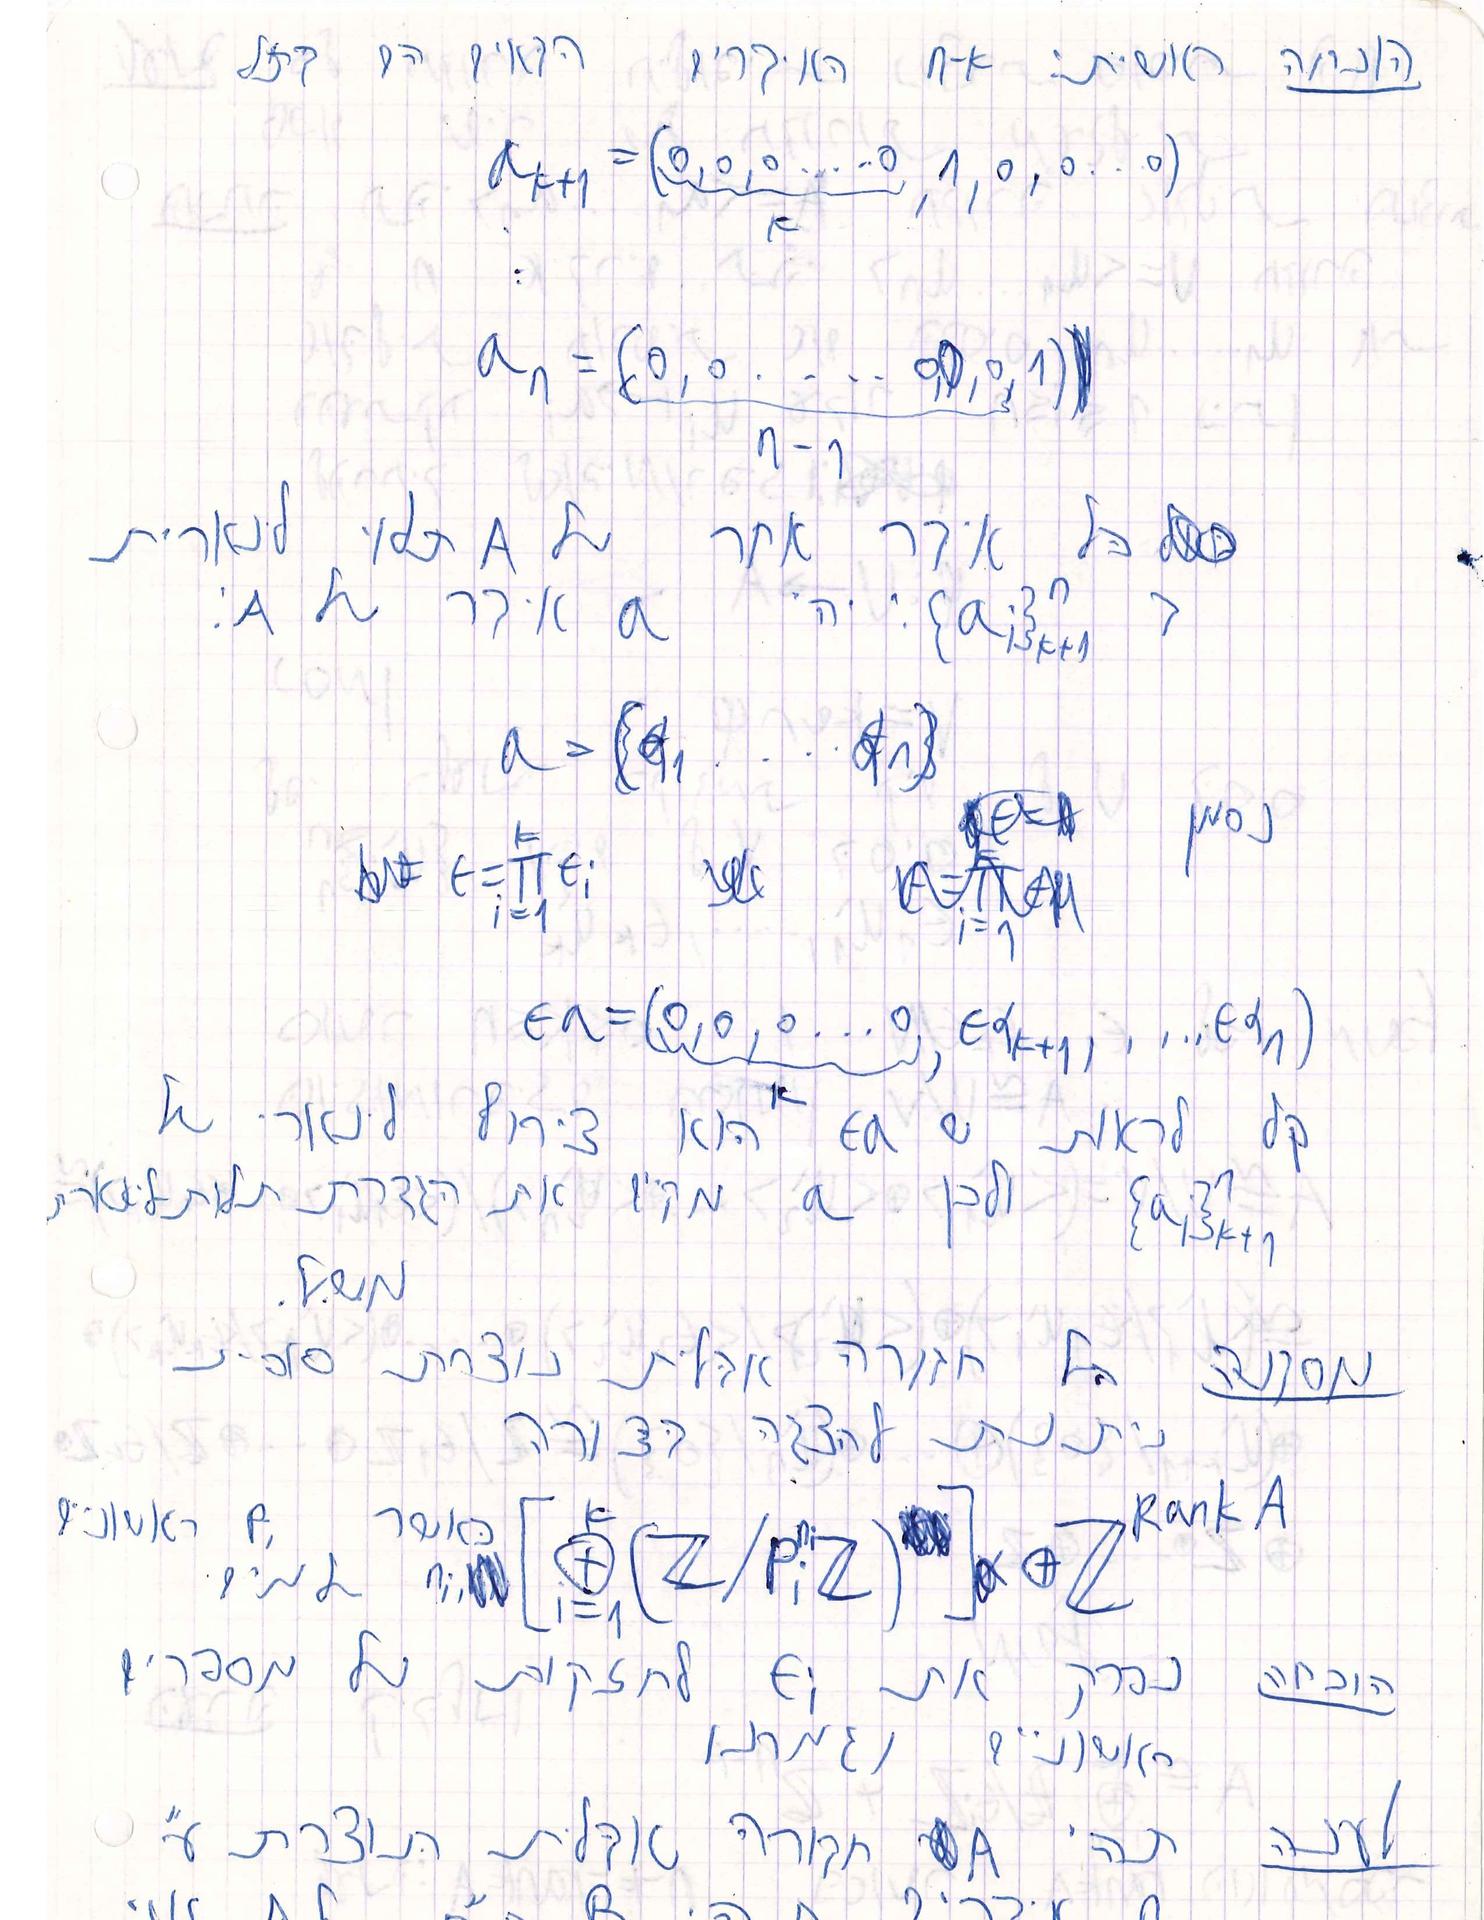 הוכחה ראשית: n-k האיברים הבאים הם בת"ל
a_{k+1} = (0,0,0....0,1,0,0...0)
k
:
:
a_n = (0,0.....0,0,0,1)
n-1
כל איבר אחר של A תלוי לינארית
ב {a_i}^n_{k+1}: יהי a איבר של A:
a = (α_1.....α_n)
נסמן
ε = ∏_{i=1}^{k} ε_i
εa = (0,0,0...0, εα_{k+1}, ,...εα_n)
k
קל לראות ש εa הוא צירוף לינארי של
{a_i}^n_{k+1} ולכן a מקיים את הגדרת תלות לינארית
מש"ל.
מסקנה כל חבורה אבלית נוצרת סופית
ניתנת להצגה בצורה
[⊕_{i=1}^{k} (Z/p_i^{n_i}Z)] ⊕ Z^{Rank A} כאשר p_i ראשוניים
n_i שלמים
הוכחה נפרק את ε_i לחזקות של מספרים
ראשוניים וגמרנו
טענה תהי A חבורה אבלית הנוצרת ע"י